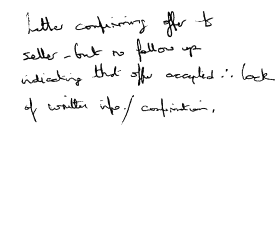 Letter confirming offer to
seller - but no follow up
indicating that offer accepted ∴ lack
of written info./ confirmation.